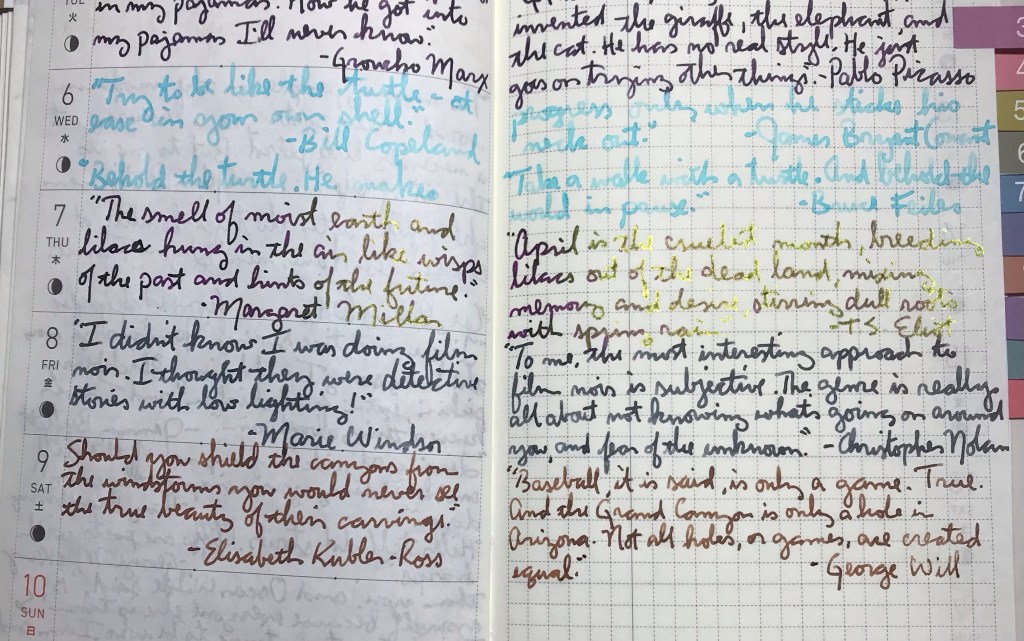 TUE
火
in my pajamas. How he got into
my pajamas I'll never know."
-Groucho Marx
6
WED
水
"Try to be like the turtle - at
ease in your own shell."
-Bill Copeland
"Behold the turtle. He makes
7
THU
木
"The smell of moist earth and
lilacs hung in the air like wisps
of the past and hints of the future."
-Margaret Millar
8
FRI
金
"I didn't know I was doing film
noir. I thought they were detective
stories with low lighting!"
-Marie Windsor
9
SAT
土
Should you shield the canyons from
the windstorms you would never see
the true beauty of their carvings."
-Elisabeth Kubler-Ross
10
SUN
日
invented the giraffe, the elephant, and
the cat. He has no real style. He just
goes on trying other things." -Pablo Picasso
progress only when he sticks his
neck out."
-James Bryant Conant
Take a walk with a turtle. And behold the
world in pause."
-Bruce Feiler
"April is the cruelest month, breeding
lilacs out of the dead land, mixing
memory and desire, stirring dull roots
with spring rain"
-T.S. Eliot
"To me, the most interesting approach to
film noir is subjective. The genre is really
all about not knowing whats going on around
you, and fear of the unknown." -Christopher Nolan
"Baseball, it is said, is only a game. True.
And the Grand Canyon is only a hole in
Arizona. Not all holes, or games, are created
equal."
-George Will
3
4
5
6
7